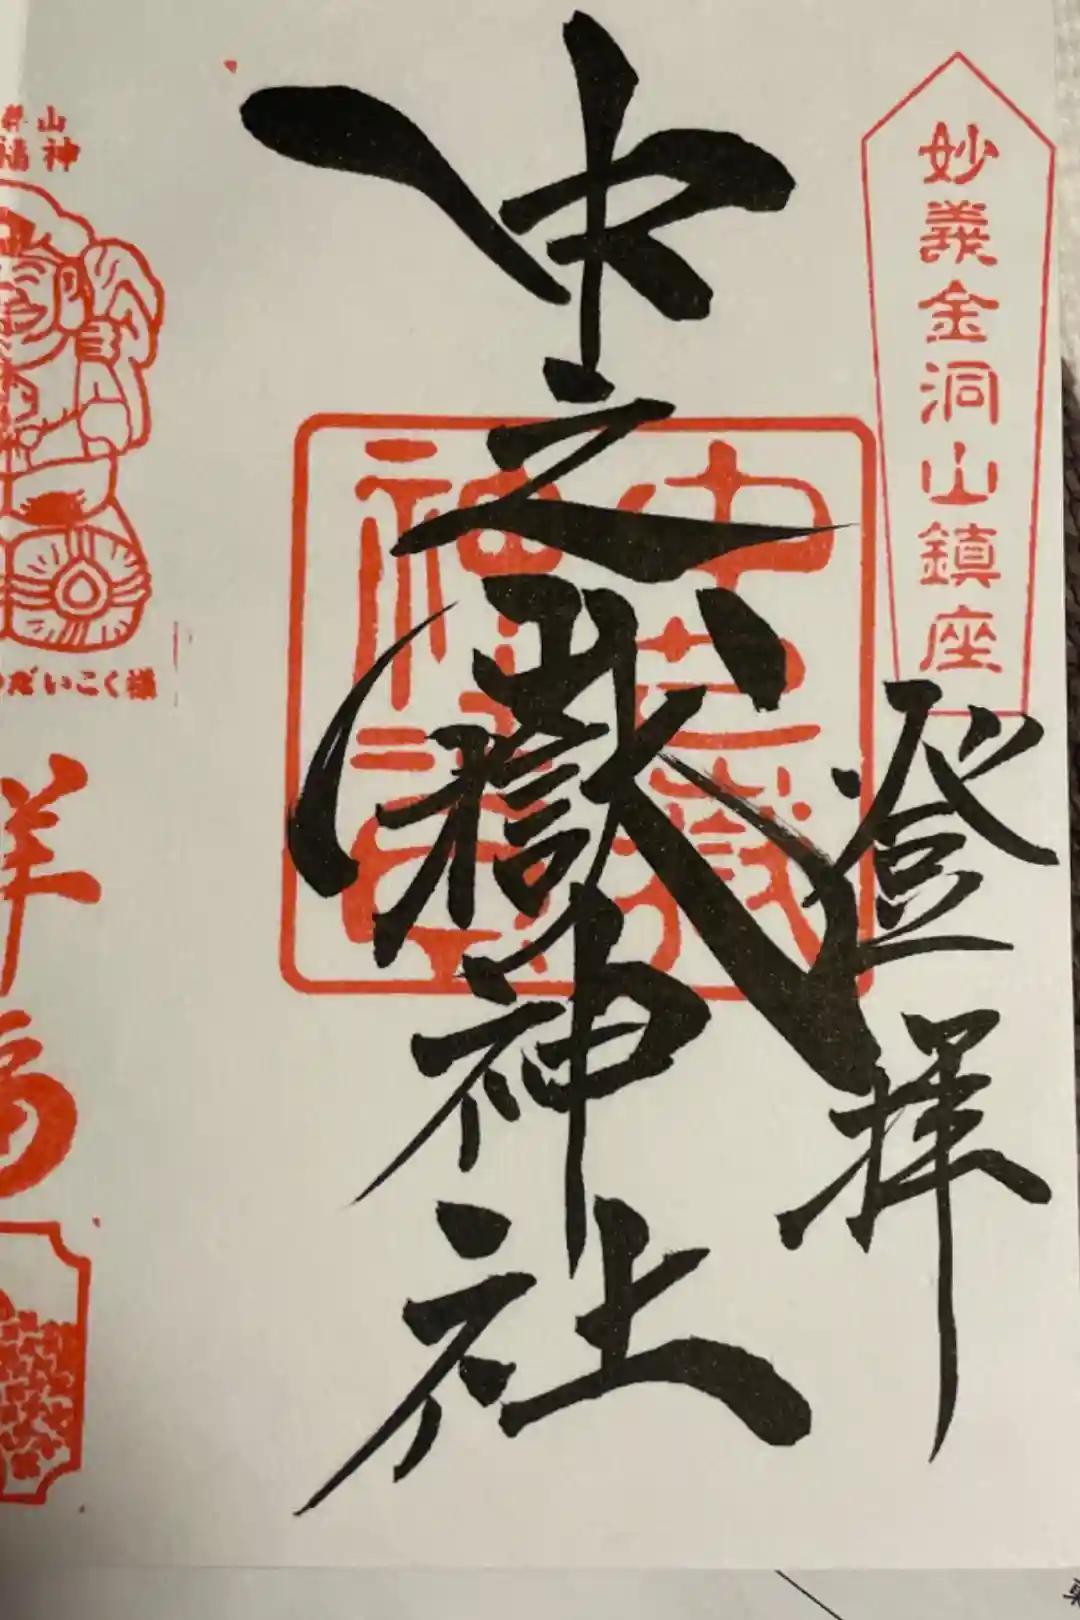 妙義金洞山鎮座
登拝
中之嶽神社
中之嶽神社
山神
だいこく様
祥福